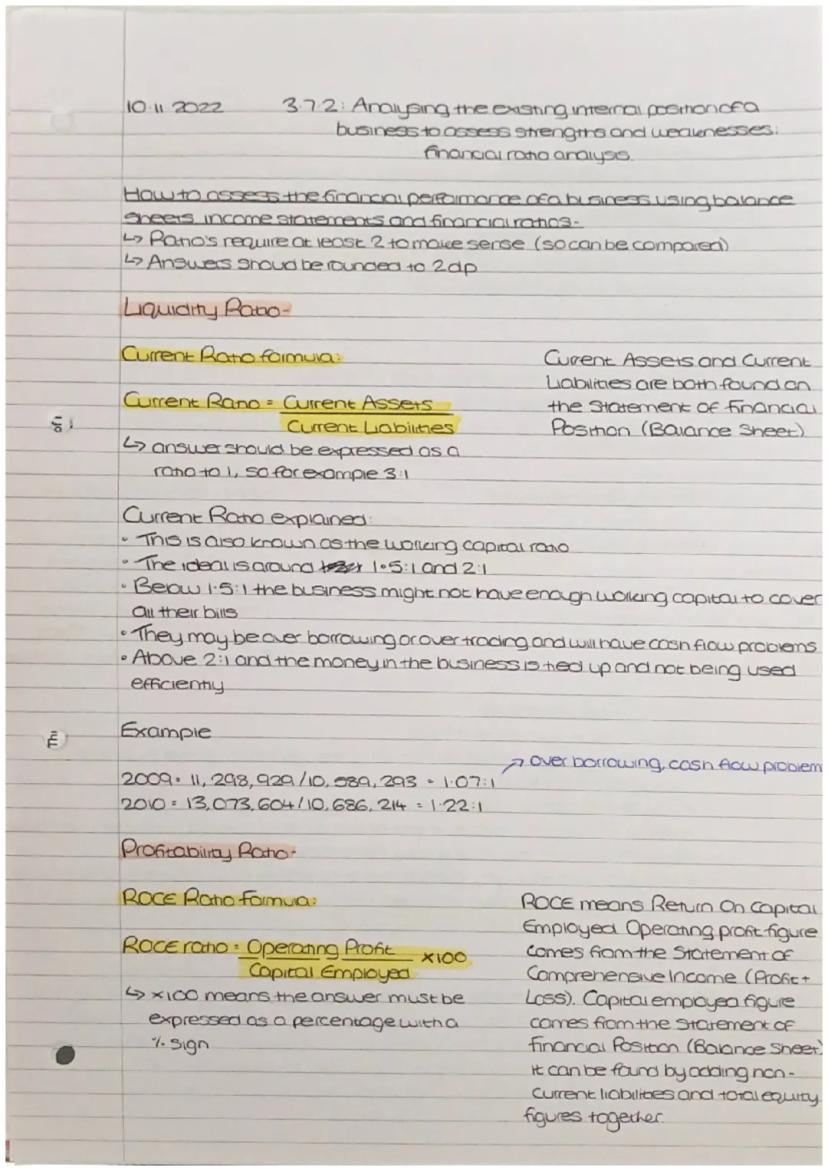 10.11 2022 3.7.2: Analysing the existing internal position of a
business to assess strengths and weaknesses:
financial ratio analysis.
How to assess the financial performance of a business using balance
sheets, income statements and financial ratios-
↳ Ratio's require at least 2 to make sense (so can be compared)
↳ Answers should be rounded to 2dp
Liquidity Ratio-
Current Ratio formula:
Current Ratio = Current Assets
Current Liabilities
↳ answer should be expressed as a
ratio to 1, so for example 3:1
Current Assets and Current
Liabilities are both found on
the Statement of Financial
Position (Balance Sheet)
Current Ratio explained:
• This is also known as the working capital ratio
• The ideal is around 1.5:1 and 2:1
• Below 1.5:1 the business might not have enough working capital to cover
all their bills
• They may be over borrowing or over trading and will have cash flow problems
• Above 2:1 and the money in the business is tied up and not being used
efficiently
Example
↗ over borrowing, cash flow problem
2009 = 11,298,929/10,589,293 = 1.07:1
2010 = 13,073,604/10,686,214 = 1.22:1
Profitability Ratio-
ROCE Ratio formula:
ROCE ratio = Operating Profit ×100
Capital Employed
↳ ×100 means the answer must be
expressed as a percentage with a
% sign
ROCE means Return On Capital
Employed Operating profit figure
comes from the Statement of
Comprehensive Income (Profit +
Loss). Capital employed figure
comes from the Statement of
Financial Position (Balance Sheet)
it can be found by adding non-
current liabilities and total equity
figures together.